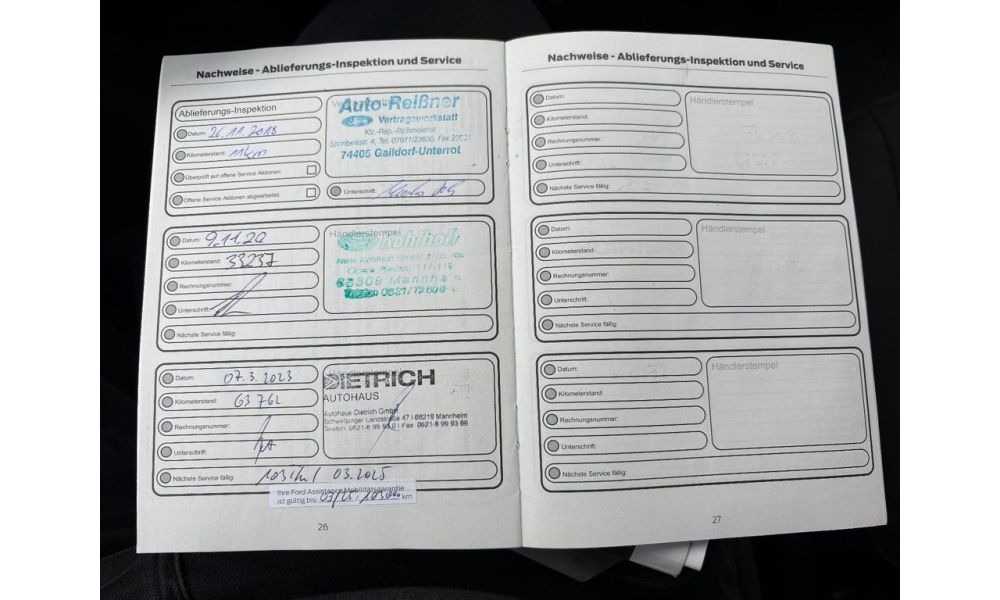 Nachweise - Ablieferungs-Inspektion und Service
Ablieferungs-Inspektion
Datum: 26.11.2018
Kilometerstand: 11 km
Überprüft auf offene Service Aktionen:
Offene Service Aktionen abgearbeitet:
Auto-Reißner
Ford Vertragswerkstatt
Kfz.-Rep.-Reifendienst
Steinbeisstr. 4, Tel. 07971/23630, Fax
74405 Gaildorf-Unterrot
Unterschrift:
Datum: 9.11.20
Kilometerstand: 33237
Rechnungsnummer:
Unterschrift:
Nächste Service fällig:
Händlerstempel
Kohlhoff
Hans Kohlhoff GmbH & Co. KG
Obere Riedstr.
68309 Mannheim
Telefon 0621/
Datum: 07.3.2023
Kilometerstand: 63762
Rechnungsnummer:
Unterschrift:
Nächste Service fällig: 03.2025
DIETRICH
AUTOHAUS
Autohaus Dietrich GmbH
Schwetzinger Landstraße 47 | 68219 Mannheim
Telefon: 0621-8 99 93 0 | Fax: 0621-8 99 93 66
Ihre Ford Assistance Mobilitätsgarantie
ist gültig bis: 03/25, 103000 km
26
Nachweise - Ablieferungs-Inspektion und Service
Datum:
Kilometerstand:
Rechnungsnummer:
Unterschrift:
Nächste Service fällig:
Händlerstempel
Datum:
Kilometerstand:
Rechnungsnummer:
Unterschrift:
Nächste Service fällig:
Händlerstempel
Datum:
Kilometerstand:
Rechnungsnummer:
Unterschrift:
Nächste Service fällig:
Händlerstempel
27